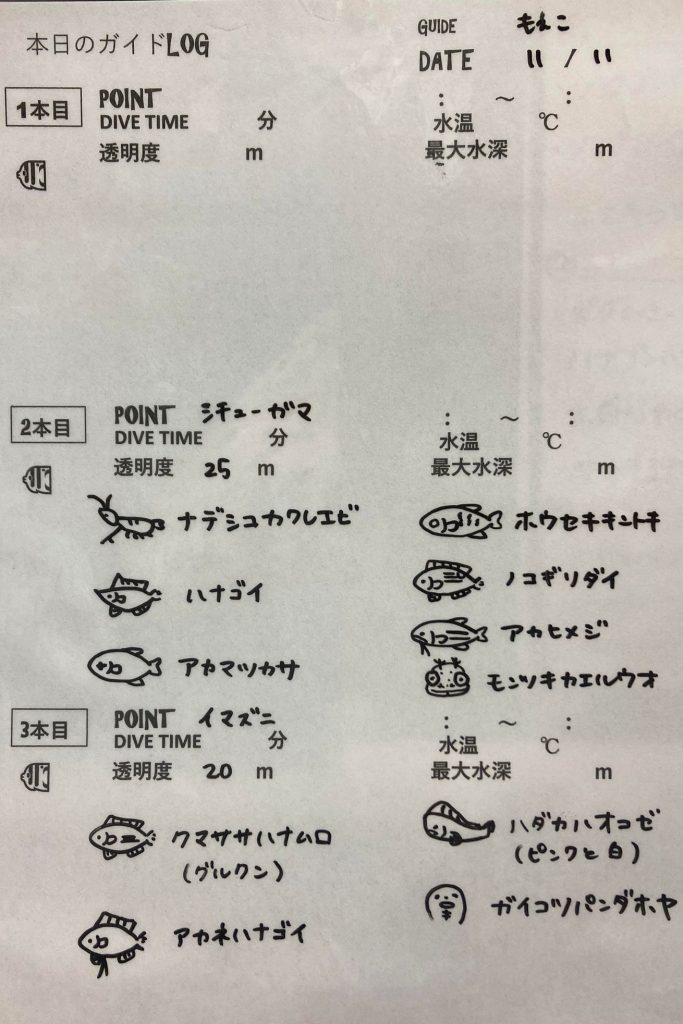 本日のガイドLOG
GUIDE もえこ
DATE 11 / 11
1本目 POINT : ～ :
DIVE TIME 分 水温 ℃
透明度 m 最大水深 m
2本目 POINT シチューガマ : ～ :
DIVE TIME 分 水温 ℃
透明度 25 m 最大水深 m
ナデシコカクレエビ ホウセキキントキ
ハナゴイ ノコギリダイ
アカヒメジ
アカマツカサ モンツキカエルウオ
3本目 POINT イマズニ : ～ :
DIVE TIME 分 水温 ℃
透明度 20 m 最大水深 m
クマササハナムロ ハダカハオコゼ
(グルクン) (ピンクと白)
アカネハナゴイ ガイコツパンダホヤ